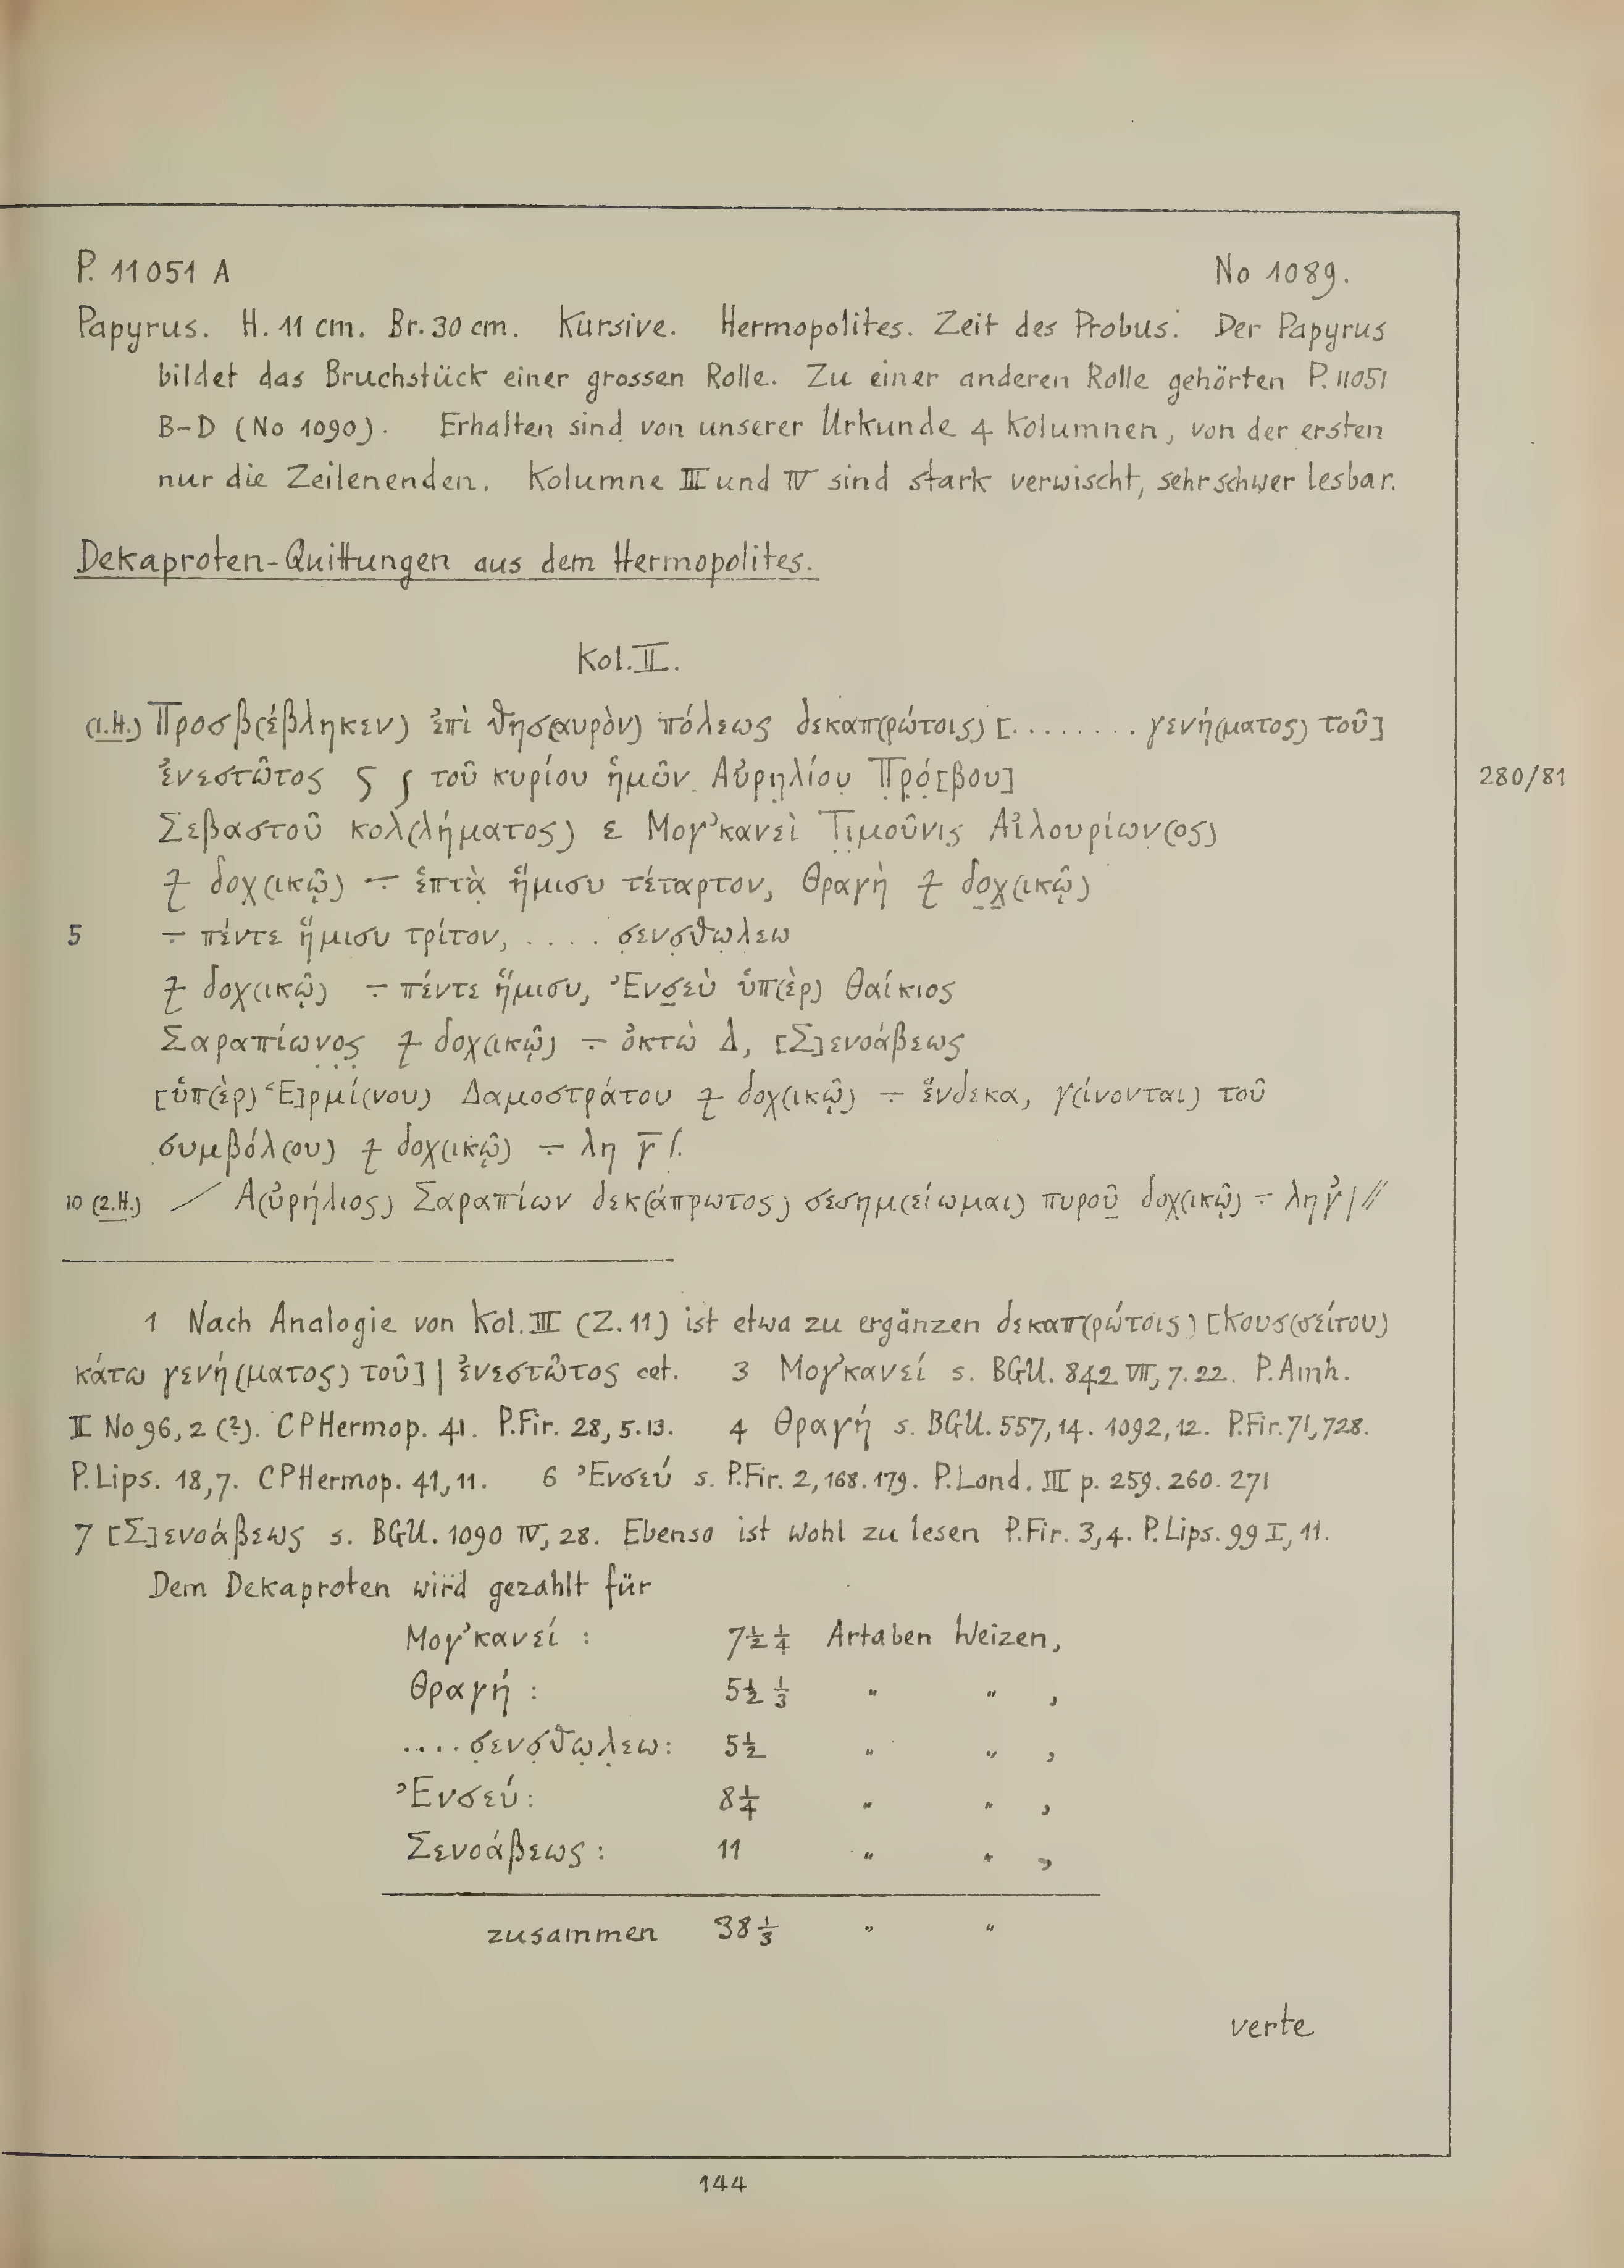 P. 11051 A No 1089.
Papyrus. H. 11 cm. Br. 30 cm. Kursive. Hermopolites. Zeit des Probus. Der Papyrus
bildet das Bruchstück einer grossen Rolle. Zu einer anderen Rolle gehörten P. 11051
B–D (No 1090). Erhalten sind von unserer Urkunde 4 Kolumnen, von der ersten
nur die Zeilenenden. Kolumne III und IV sind stark verwischt, sehr schwer lesbar.
Dekaproten-Quittungen aus dem Hermopolites.
Kol. II.
(1.H.) Προσβ(έβληκεν) ἐπὶ θησ(αυρὸν) πόλεως δεκαπ(ρώτοις) [........ γενή(ματος) τοῦ]
ἐνεστῶτος ϛ ʃ τοῦ κυρίου ἡμῶν Αὐρηλίου Πρό[βου] 280/81
Σεβαστοῦ κολ(λήματος) ε Μογ’κανεὶ Τιμοῦνις Αἰλουρίων(ος)
𐅪 δοχ(ικῷ) ÷ ἑπτὰ ἥμισυ τέταρτον, Θραγὴ 𐅪 δοχ(ικῷ)
5 ÷ πέντε ἥμισυ τρίτον, .... σενσθωλεω
𐅪 δοχ(ικῷ) ÷ πέντε ἥμισυ, Ἐνσεὺ ὑπ(ὲρ) Θαίκιος
Σαραπίωνος 𐅪 δοχ(ικῷ) ÷ ὀκτὼ Δ, [Σ]ενοάβεως
[ὑπ(ὲρ) Ἑ]ρμί(νου) Δαμοστράτου 𐅪 δοχ(ικῷ) ÷ ἕνδεκα, γ(ίνονται) τοῦ
συμβόλ(ου) 𐅪 δοχ(ικῷ) ÷ λη γ̅ /.
10 (2.H.) / Α(ὐρήλιος) Σαραπίων δεκ(άπρωτος) σεσημ(είωμαι) πυροῦ δοχ(ικῷ) ÷ λη γ̓ | //
1 Nach Analogie von Kol. III (Z. 11) ist etwa zu ergänzen δεκαπ(ρώτοις) [Κουσ(σείτου)
κάτω γενή(ματος) τοῦ] | ἐνεστῶτος cet. 3 Μογ’κανεί s. BGU. 842 VII, 7. 22. P. Amh.
II No 96, 2 (?). CPHermop. 41. P. Fir. 28, 5. 13. 4 Θραγή s. BGU. 557, 14. 1092, 12. P. Fir. 71, 728.
P. Lips. 18, 7. CPHermop. 41, 11. 6 Ἐνσεύ s. P. Fir. 2, 168. 179. P. Lond. III p. 259. 260. 271
7 [Σ]ενοάβεως s. BGU. 1090 IV, 28. Ebenso ist wohl zu lesen P. Fir. 3, 4. P. Lips. 99 I, 11.
Dem Dekaproten wird gezahlt für
Μογ’κανεί : 7½ ¼ Artaben Weizen,
Θραγή : 5½ ⅓ " " ,
....σενσθωλεω : 5½ " " ,
Ἐνσεύ : 8¼ " " ,
Σενοάβεως : 11 " " ,
zusammen 38⅓ " "
verte
144